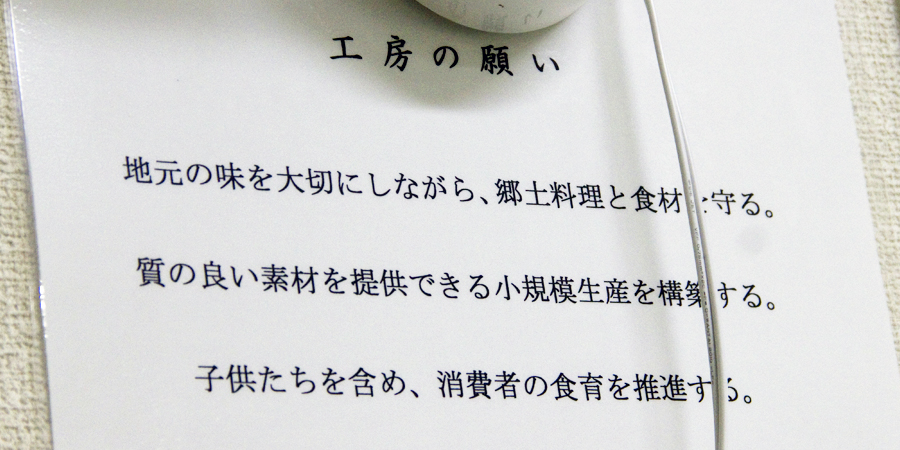 工房の願い
地元の味を大切にしながら、郷土料理と食材を守る。
質の良い素材を提供できる小規模生産を構築する。
子供たちを含め、消費者の食育を推進する。